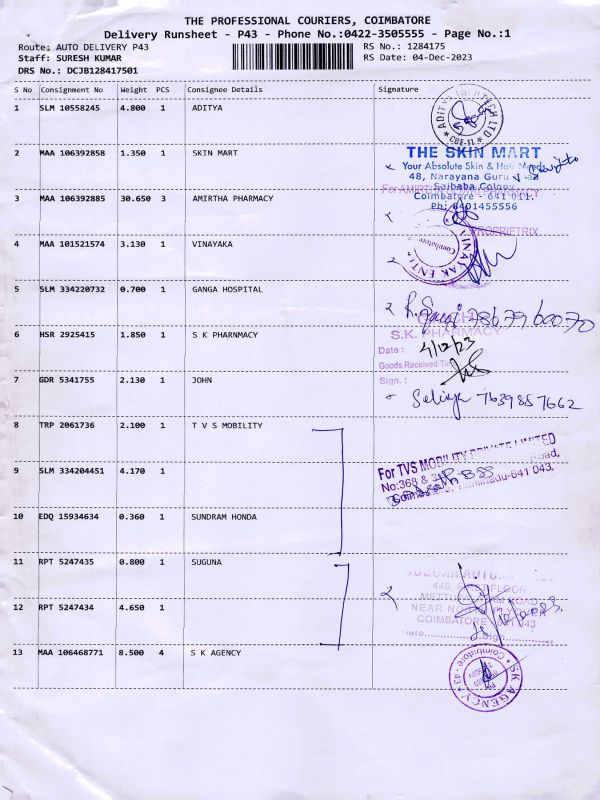 THE PROFESSIONAL COURIERS, COIMBATORE
Delivery Runsheet - P43 - Phone No.:0422-3505555 - Page No.:1
Route: AUTO DELIVERY P43 RS No.: 1284175
Staff: SURESH KUMAR RS Date: 04-Dec-2023
DRS No.: DCJB128417501
S No Consignment No Weight PCS Consignee Details Signature
1 SLM 10558245 4.800 1 ADITYA
ADITYA TECH LTD
CBE-11
2 MAA 106392858 1.350 1 SKIN MART
THE SKIN MART
Your Absolute Skin & Hair Needs
48, Narayana Guru
Saibaba Colony
Coimbatore - 641 011.
Ph: 0401455556
3 MAA 106392885 30.650 3 AMIRTHA PHARMACY
For AMIRTHA PHARMACY
PROPRIETRIX
4 MAA 101521574 3.130 1 VINAYAKA
VINAYAK ENT
Coimbatore
5 SLM 334220732 0.700 1 GANGA HOSPITAL
78679 60070
6 HSR 2925415 1.850 1 S K PHARNMACY
S.K. PHARMACY
Date: 4/12/23
Goods Received Time
Sign.:
7 GDR 5341755 2.130 1 JOHN
7639857662
8 TRP 2061736 2.100 1 T V S MOBILITY
For TVS MOBILITY PRIVATE LIMITED
No:368 &
Road,
Coimbatore, Tamilnadu-641 043.
BSS
9 SLM 334204451 4.170 1
10 EDQ 15934634 0.360 1 SUNDRAM HONDA
11 RPT 5247435 0.800 1 SUGUNA
446, FIRST FLOOR
METTUPALAYAM ROAD
NEAR
COIMBATORE 43
Date
Sign
12 RPT 5247434 4.650 1
13 MAA 106468771 8.500 4 S K AGENCY
SK AGENCY
Coimbatore - 43